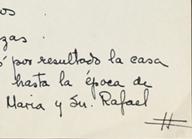 os
zas.
por resultado la casa
hasta la época de
Maria y Su. Rafael